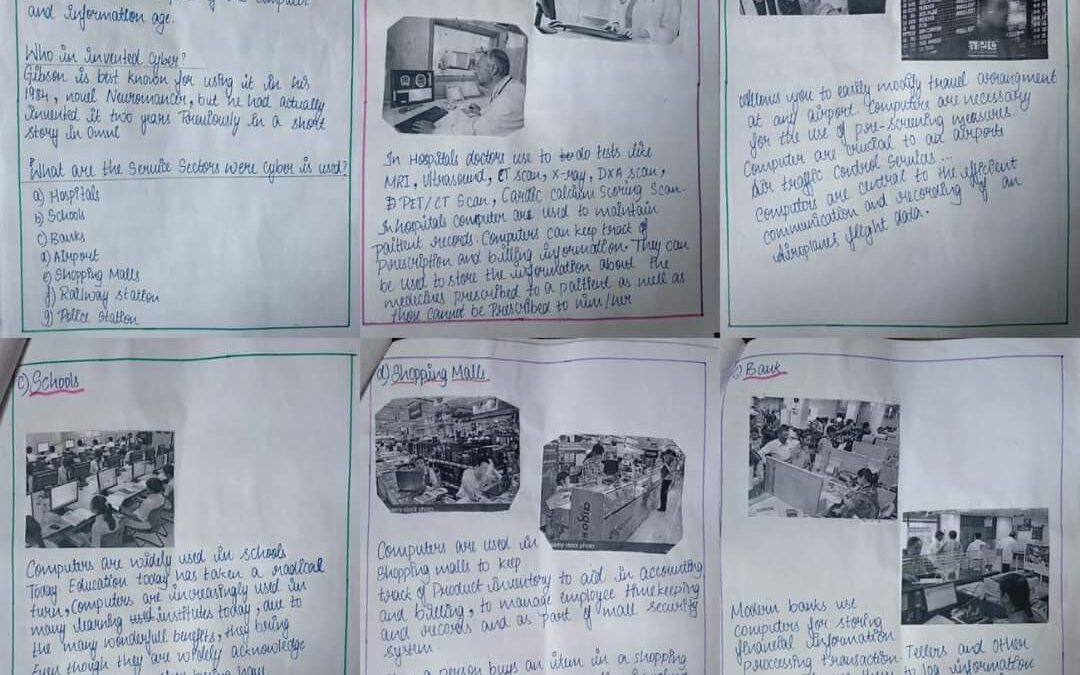 and information age.
Who in invented Cyber?
Gibson is best known for using it in his
1984, novel Neuromancer, but he had actually
invented it two years Previously in a short
story in Omni
What are the Service Sectors were cyber is used?
a) Hospitals
b) Schools
c) Banks
d) Airport
e) Shopping Malls
f) Railway station
g) Police Station
In Hospitals doctors use to do tests like
MRI, Ultrasound, CT scan, X-ray, DXA scan,
PET/CT Scan, Cardic calcium Scoring Scan.
In hospitals computer are used to maintain
paitient records. Computers can keep track of
Prescription and billing information. They can
be used to store the information about the
medicines prescribed to a paitient as well as
those cannot be Prescribed to him/her
allows you to easily modify travel arrangment
at any airport. Computers are necessary
for the use of pre-screening measures.
Computer are crucial to aid airports
Air traffic control Servies...
Computers are central to the efficient
communication and recording of an
Airoplanes flight data.
c) Schools
Computers are widely used in schools
Today. Education today has taken a radical
turn, computers are increasingly used in
many learning institutes today, due to
the many wonderful benefits, they bring
Even though they are widely acknowledge
d) Shopping Malls
amy stock photo
amy stock photo
Computers are used in
Shopping malls to keep
track of Product inventory to aid in accounting
and billing, to manage employee timekeeping
and records and as part of mall security
system.
a person buys an item in a shopping
Bank
Modern banks use
computers for storing
financial information
processing transaction.
Tellers and other
to log information